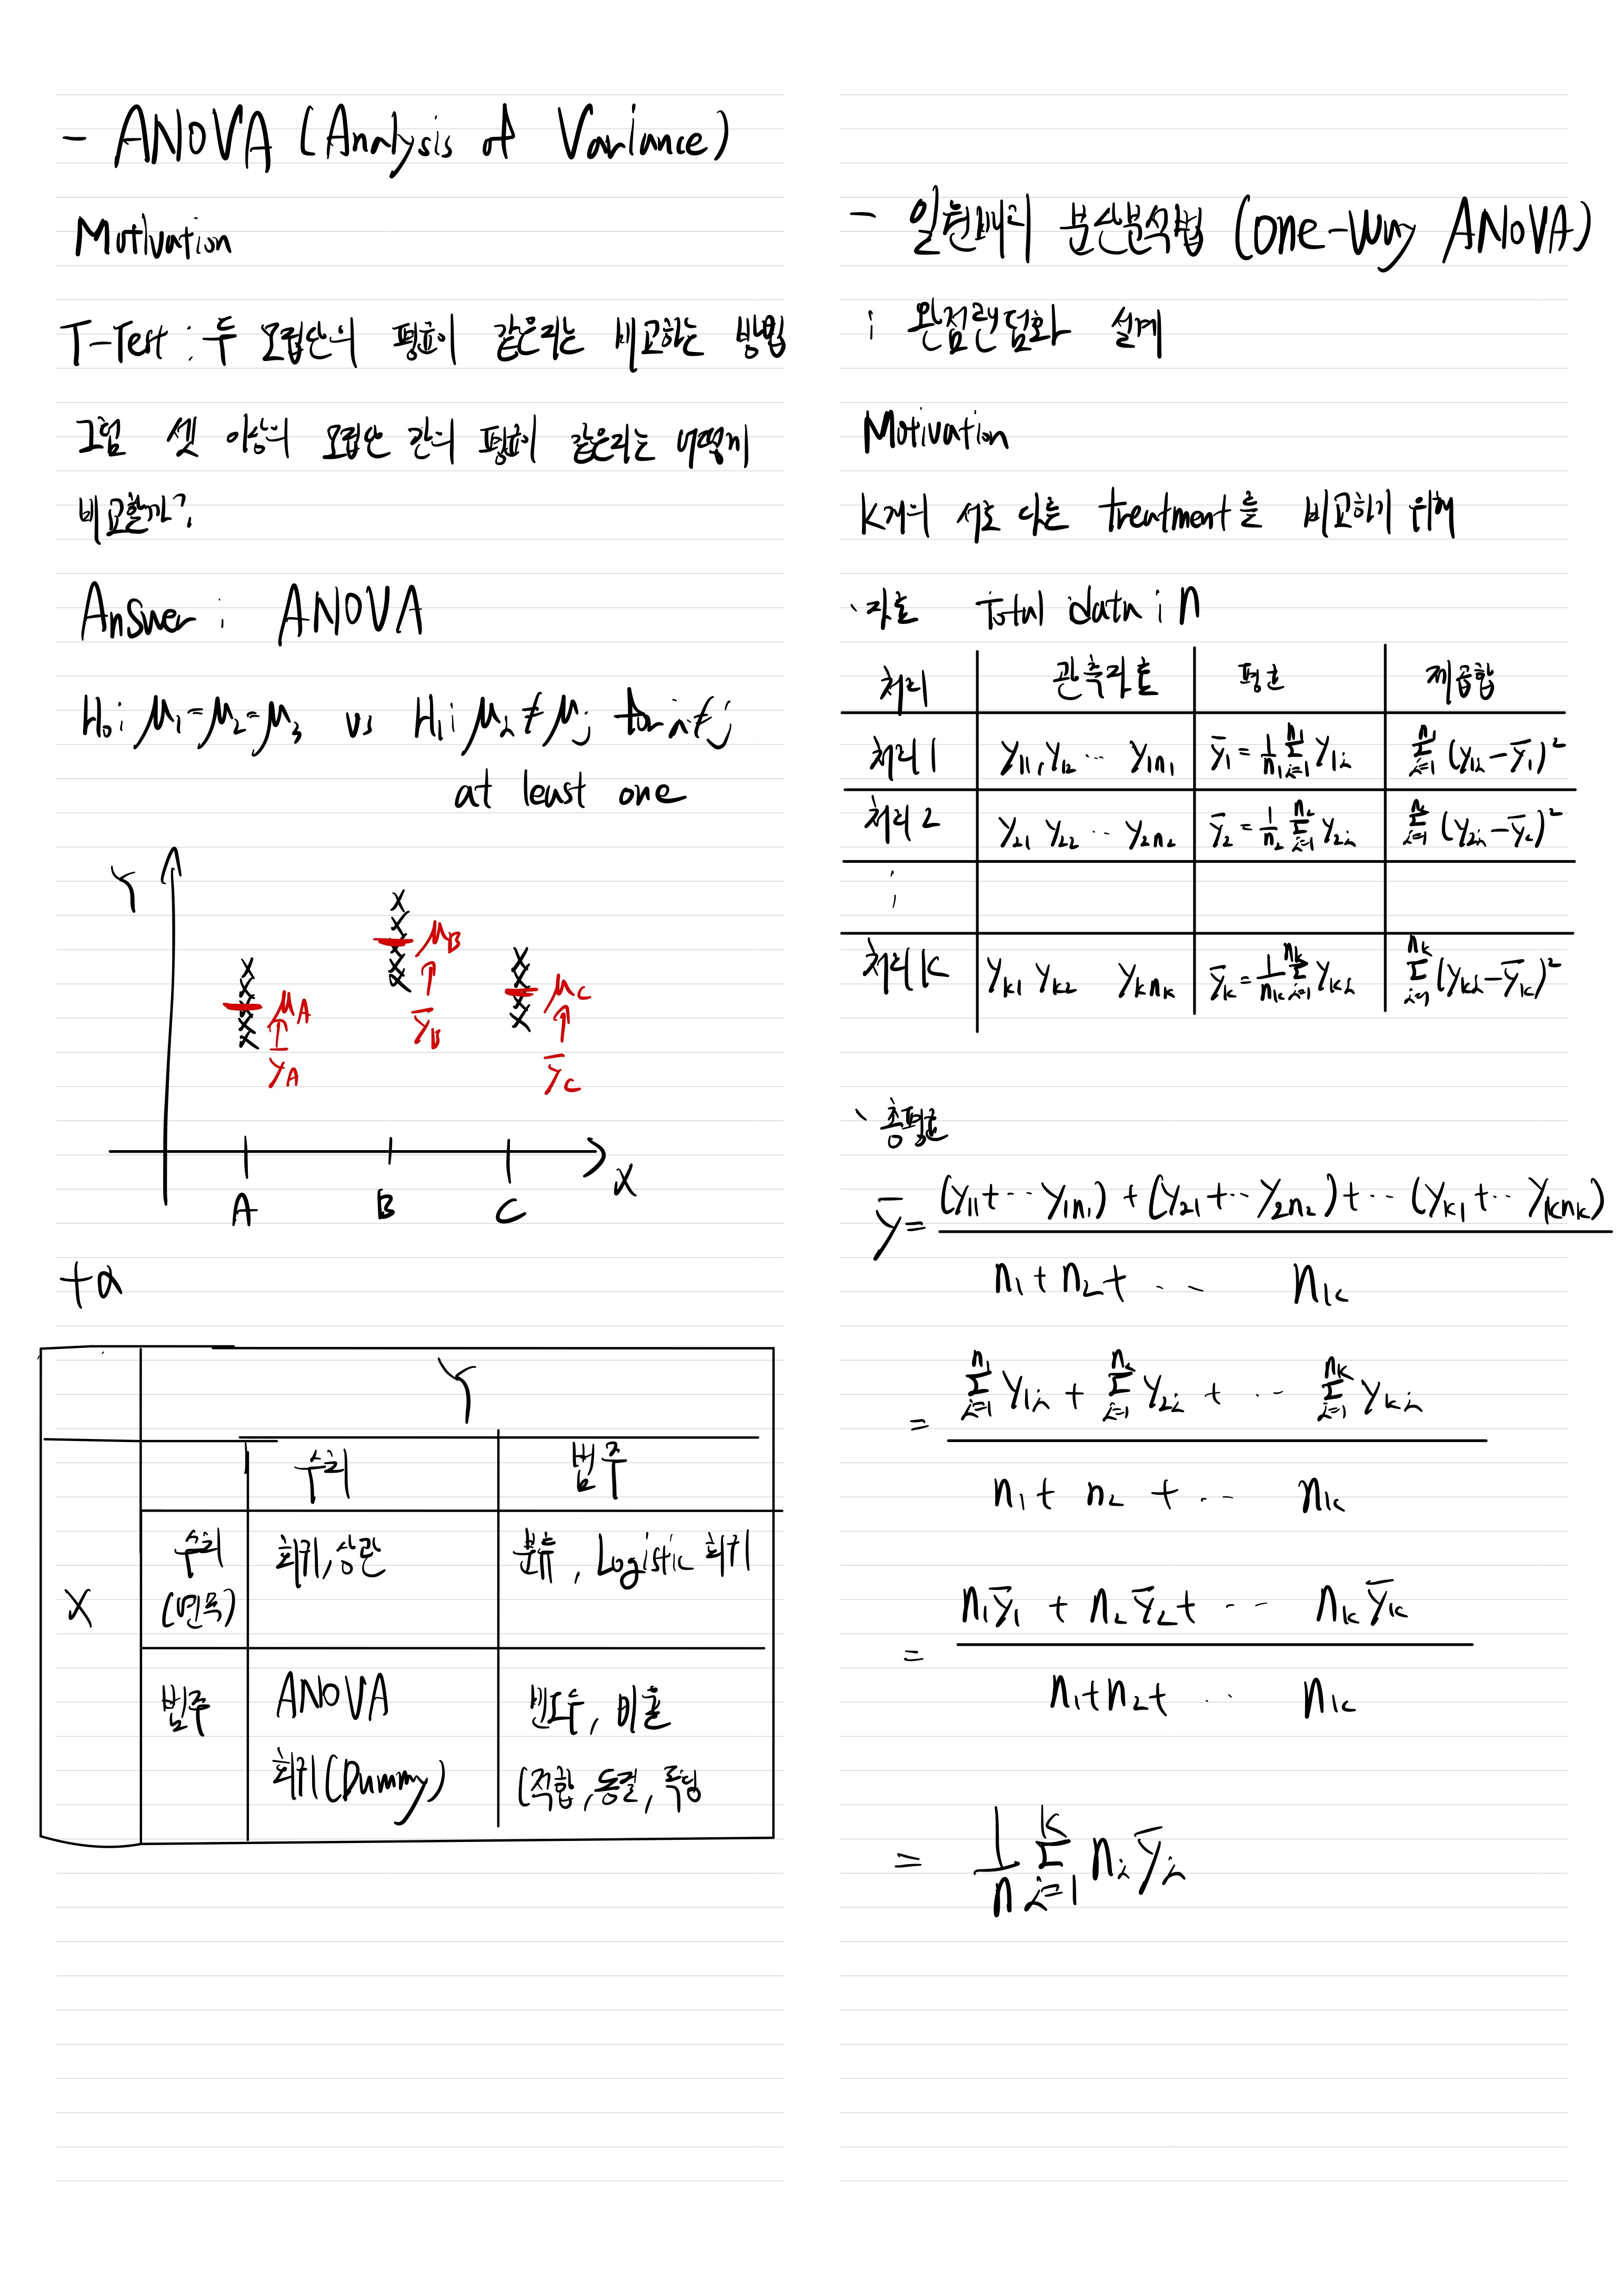 - ANOVA (Analysis of Variance)
Motivation
T-Test : 두 모집단의 평균이 같은지는 비교하는 방법
그럼 셋 이상의 모집단 간의 평균이 같은지는 어떻게
비교할까?
Answer : ANOVA
H₀ : μ₁=μ₂=μ₃ vs H₁ : μᵢ ≠ μⱼ for i≠j
at least one
Y
μ_A ȳ_A
μ_B ȳ_B
μ_C ȳ_C
A B C X
+α
Y
수치 범주
X 수치 (연속) 회귀, 상관 분류, Logistic 회귀
범주 ANOVA 빈도수, 비율
회귀(Dummy) (적합, 동질, 독립
- 일원배치 분산분석법 (One-Way ANOVA)
: 완전랜덤화 설계
Motivation
K개의 서로 다른 treatment를 비교하기 위해
· 자료 Total data : n
처리 관측자료 평균 제곱합
처리 1 y₁₁, y₁₂ ... y₁n₁ ȳ₁ = 1/n₁ Σ_{i=1}^{n₁} y₁ᵢ Σ_{i=1}^{n₁} (y₁ᵢ - ȳ₁)²
처리 2 y₂₁ y₂₂ ... y₂n₂ ȳ₂ = 1/n₂ Σ_{i=1}^{n₂} y₂ᵢ Σ_{i=1}^{n₂} (y₂ᵢ - ȳ₂)²
⋮
처리 K y_k1 y_k2 y_kn_k ȳ_k = 1/n_k Σ_{i=1}^{n_k} y_ki Σ_{i=1}^{n_k} (y_ki - ȳ_k)²
· 총평균
ȳ = (y₁₁+ ... y₁n₁) + (y₂₁+ ... y₂n₂) + ... (y_k1+ ... y_kn_k)
n₁ + n₂ + ... n_k
= Σ_{i=1}^{n₁} y₁ᵢ + Σ_{i=1}^{n₂} y₂ᵢ + ... Σ_{i=1}^{n_k} y_ki
n₁ + n₂ + ... n_k
= n₁ȳ₁ + n₂ȳ₂ + ... n_kȳ_k
n₁ + n₂ + ... n_k
= 1/n Σ_{i=1}^{K} nᵢȳᵢ